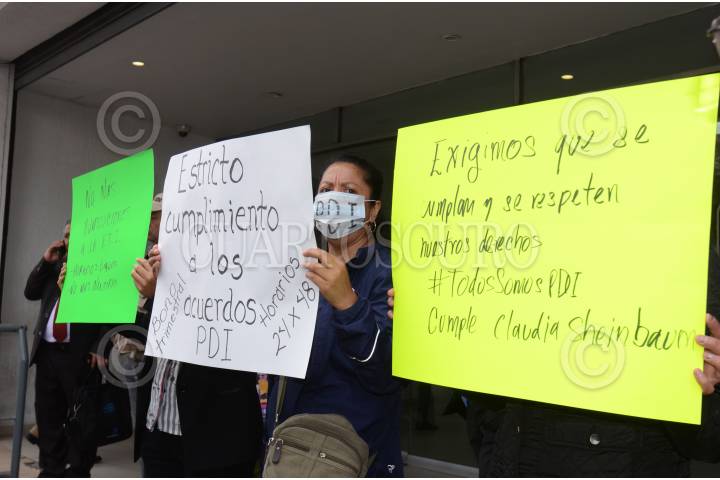 No más
a la P.D.I.
Estricto
cumplimiento
a los
acuerdos
PDI
Bono
trimestral
Horarios
24 x 48
Exigimos que se
cumplan y se respeten
nuestros derechos
#TodosSomosPDI
Cumple Claudia Sheinbaum
CUARTOSCURO